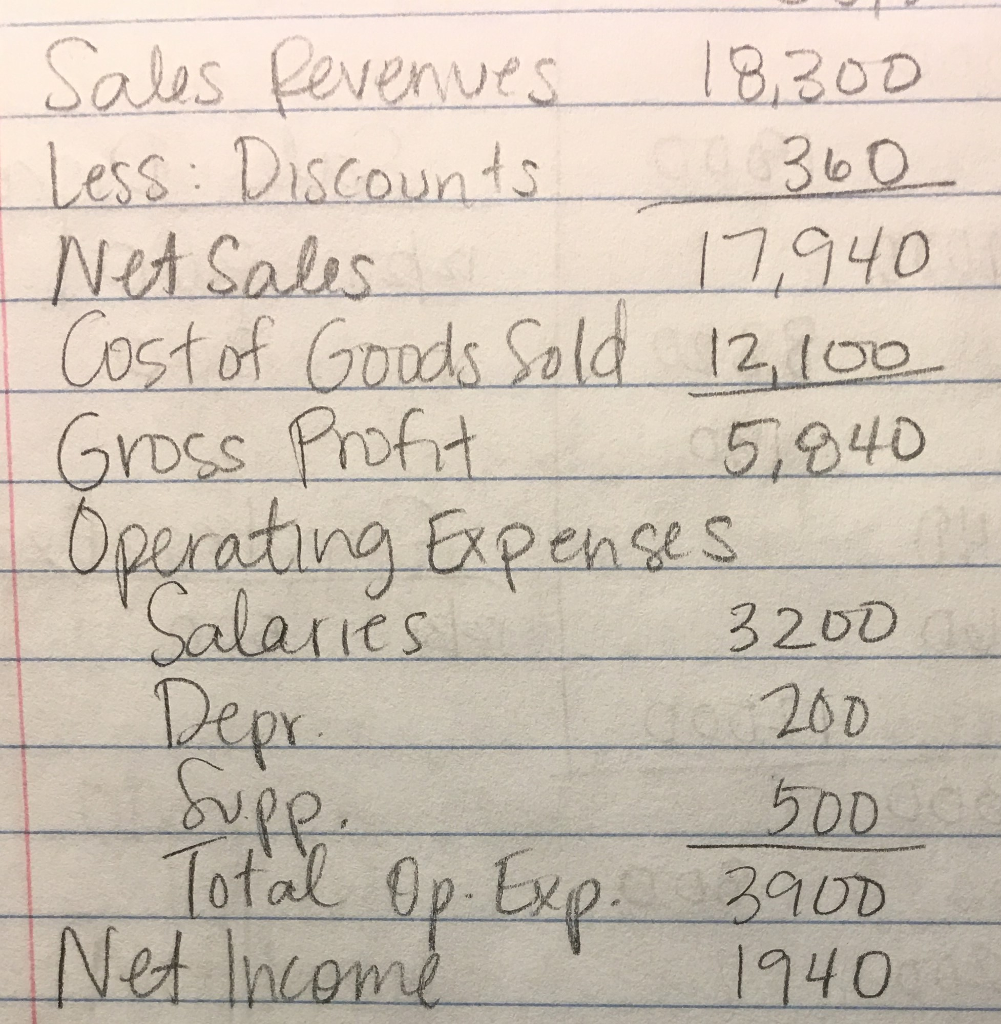 Sales Revenues 18,300
Less: Discounts 360
Net Sales 17,940
Cost of Goods Sold 12,100
Gross Profit 5,840
Operating Expenses
Salaries 3200
Depr. 200
Supp. 500
Total Op. Exp. 3900
Net Income 1940